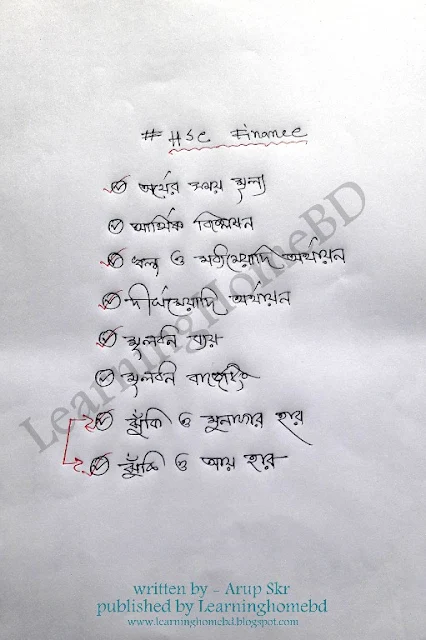 # HSC Finance
অর্থের সময় মূল্য
আর্থিক বিশ্লেষন
স্বল্প ও মধ্যমেয়াদি অর্থায়ন
দীর্ঘমেয়াদি অর্থায়ন
মূলধনি ব্যয়
মূলধনি বাজেটিং
ঝুঁকি ও মুনাফার হার
ঝুঁকি ও আয় হার
LearningHomeBD
written by - Arup Skr
published by Learninghomebd
www.learninghomebd.blogspot.com